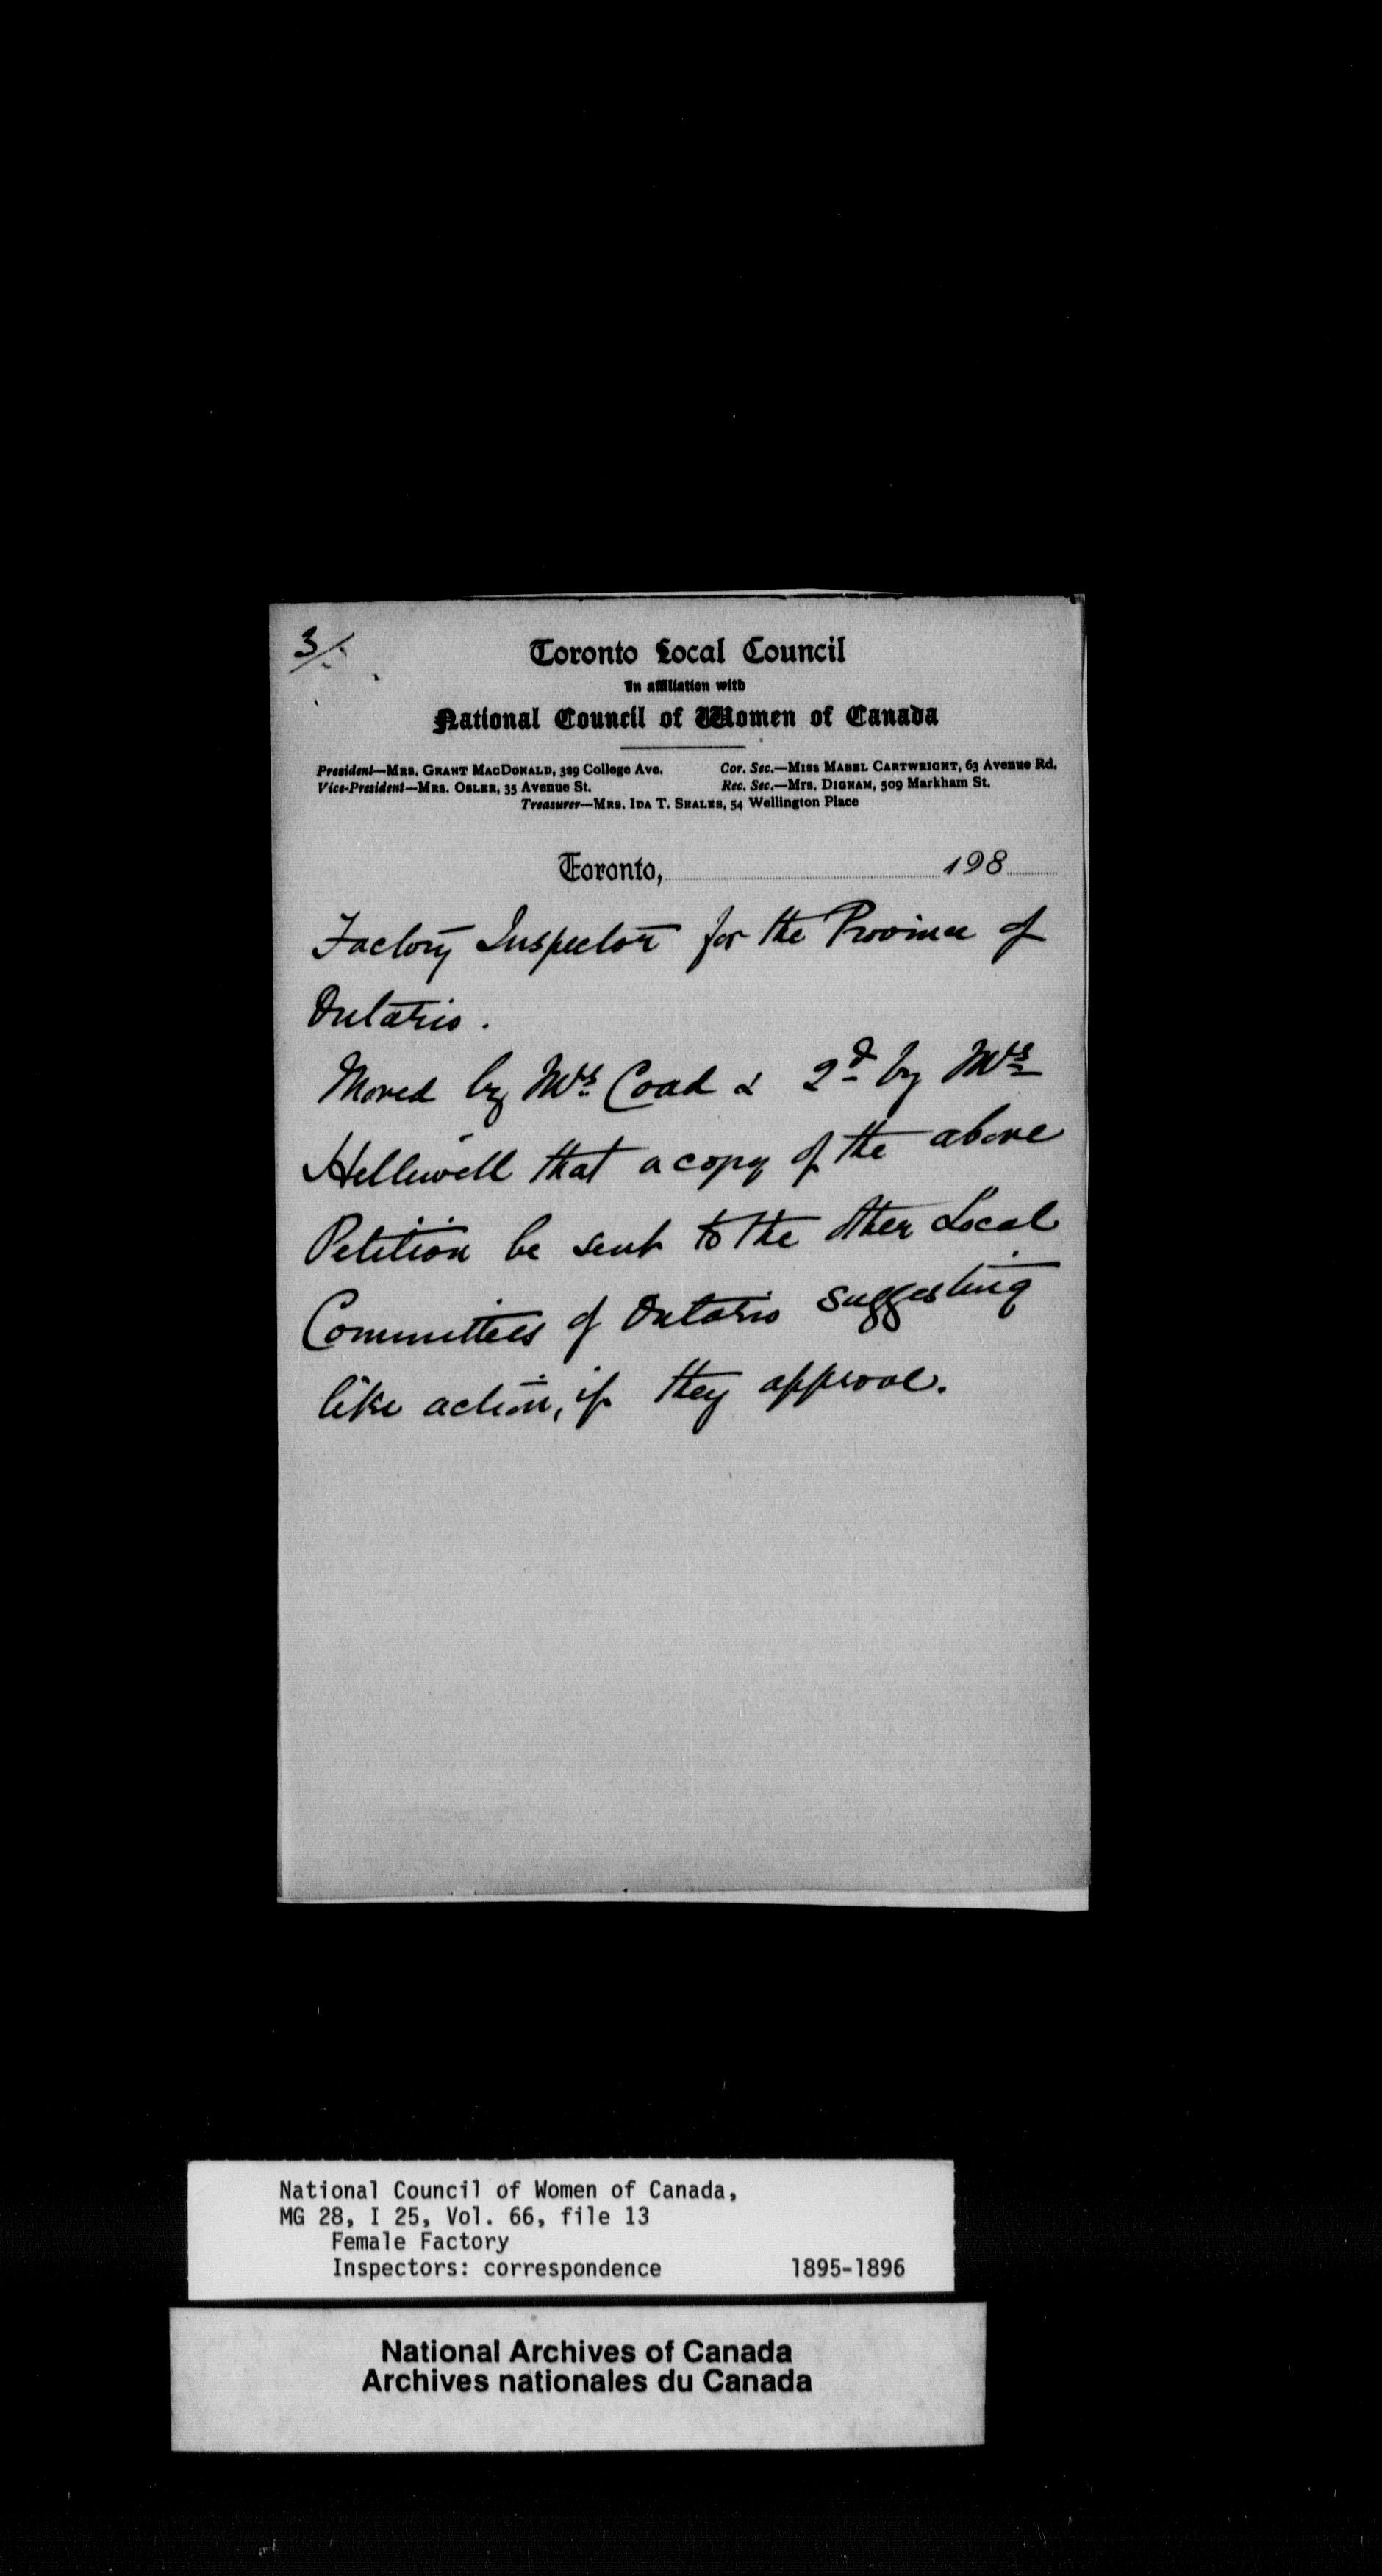 3/
Toronto Local Council
In affiliation with
National Council of Women of Canada
President—Mrs. Grant MacDonald, 329 College Ave.
Cor. Sec.—Miss Mabel Cartwright, 63 Avenue Rd.
Vice-President—Mrs. Osler, 35 Avenue St.
Rec. Sec.—Mrs. Dignam, 509 Markham St.
Treasurer—Mrs. Ida T. Seales, 54 Wellington Place
Toronto, 198
Factory Inspector for the Province of
Ontario.
Moved by Mrs. Coad & 2d by Mrs
Helliwell that a copy of the above
Petition be sent to the other Local
Committees of Ontario suggesting
like action, if they approve.
National Council of Women of Canada,
MG 28, I 25, Vol. 66, file 13
Female Factory
Inspectors: correspondence 1895-1896
National Archives of Canada
Archives nationales du Canada